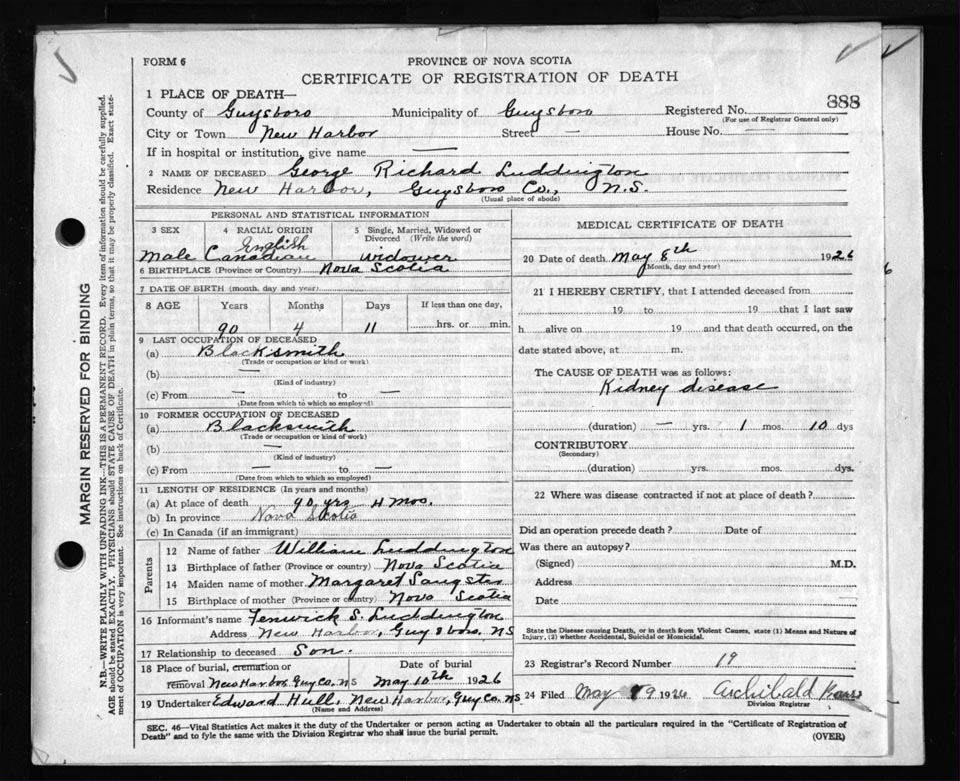 FORM 6
PROVINCE OF NOVA SCOTIA
CERTIFICATE OF REGISTRATION OF DEATH
1 PLACE OF DEATH—
County of Guysboro Municipality of Guysboro Registered No. 388
(For use of Registrar General only)
City or Town New Harbor Street — House No. —
If in hospital or institution, give name —
2 NAME OF DECEASED George Richard Luddington
Residence New Harbor, Guysboro Co., N.S.
(Usual place of abode)
PERSONAL AND STATISTICAL INFORMATION
3 SEX 4 RACIAL ORIGIN 5 Single, Married, Widowed or Divorced (Write the word)
English
Male Canadian Widower
6 BIRTHPLACE (Province or Country) Nova Scotia
7 DATE OF BIRTH (month, day and year)
8 AGE Years Months Days If less than one day,
90 4 11 hrs. or min.
9 LAST OCCUPATION OF DECEASED
(a) Blacksmith
(Trade or occupation or kind or work)
(b) —
(Kind of industry)
(c) From — to —
(Date from which to which so employed)
10 FORMER OCCUPATION OF DECEASED
(a) Blacksmith
(Trade or occupation or kind of work)
(b) —
(Kind of industry)
(c) From — to —
(Date from which to which so employed)
11 LENGTH OF RESIDENCE (In years and months)
(a) At place of death 90 yrs 4 mos.
(b) In province Nova Scotia
(c) In Canada (if an immigrant)
Parents
12 Name of father William Luddington
13 Birthplace of father (Province or country) Nova Scotia
14 Maiden name of mother Margaret Sangster
15 Birthplace of mother (Province or country) Nova Scotia
16 Informant's name Fenwick S. Luddington
Address New Harbor, Guysboro. NS
17 Relationship to deceased Son.
18 Place of burial, cremation or removal New Harbor, Guy Co. NS Date of burial May 10th 1926
19 Undertaker Edward Hull, New Harbor, Guy Co. NS
(Name and Address)
MEDICAL CERTIFICATE OF DEATH
20 Date of death May 8th 1926
(Month, day and year)
21 I HEREBY CERTIFY, that I attended deceased from
19 to 19 that I last saw
h alive on 19 and that death occurred, on the
date stated above, at m.
The CAUSE OF DEATH was as follows:
Kidney disease
(duration) — yrs. 1 mos. 10 dys
CONTRIBUTORY
(Secondary)
(duration) yrs. mos. dys.
22 Where was disease contracted if not at place of death?
Did an operation precede death? Date of
Was there an autopsy?
(Signed) M.D.
Address
Date
State the Disease causing Death, or in death from Violent Causes, state (1) Means and Nature of Injury, (2) whether Accidental, Suicidal or Homicidal.
23 Registrar's Record Number 19
24 Filed May 9 1926 Archibald
Division Registrar
SEC. 46—Vital Statistics Act makes it the duty of the Undertaker or person acting as Undertaker to obtain all the particulars required in the "Certificate of Registration of
Death" and to fyle the same with the Division Registrar who shall issue the burial permit.
(OVER)
MARGIN RESERVED FOR BINDING
N.B.—WRITE PLAINLY WITH UNFADING INK—THIS IS A PERMANENT RECORD. Every item of information should be carefully supplied.
AGE should be stated EXACTLY. PHYSICIANS should STATE CAUSE OF DEATH in plain terms, so that it may be properly classified. Exact state-
ment of OCCUPATION is very important. See instructions on back of Certificate.